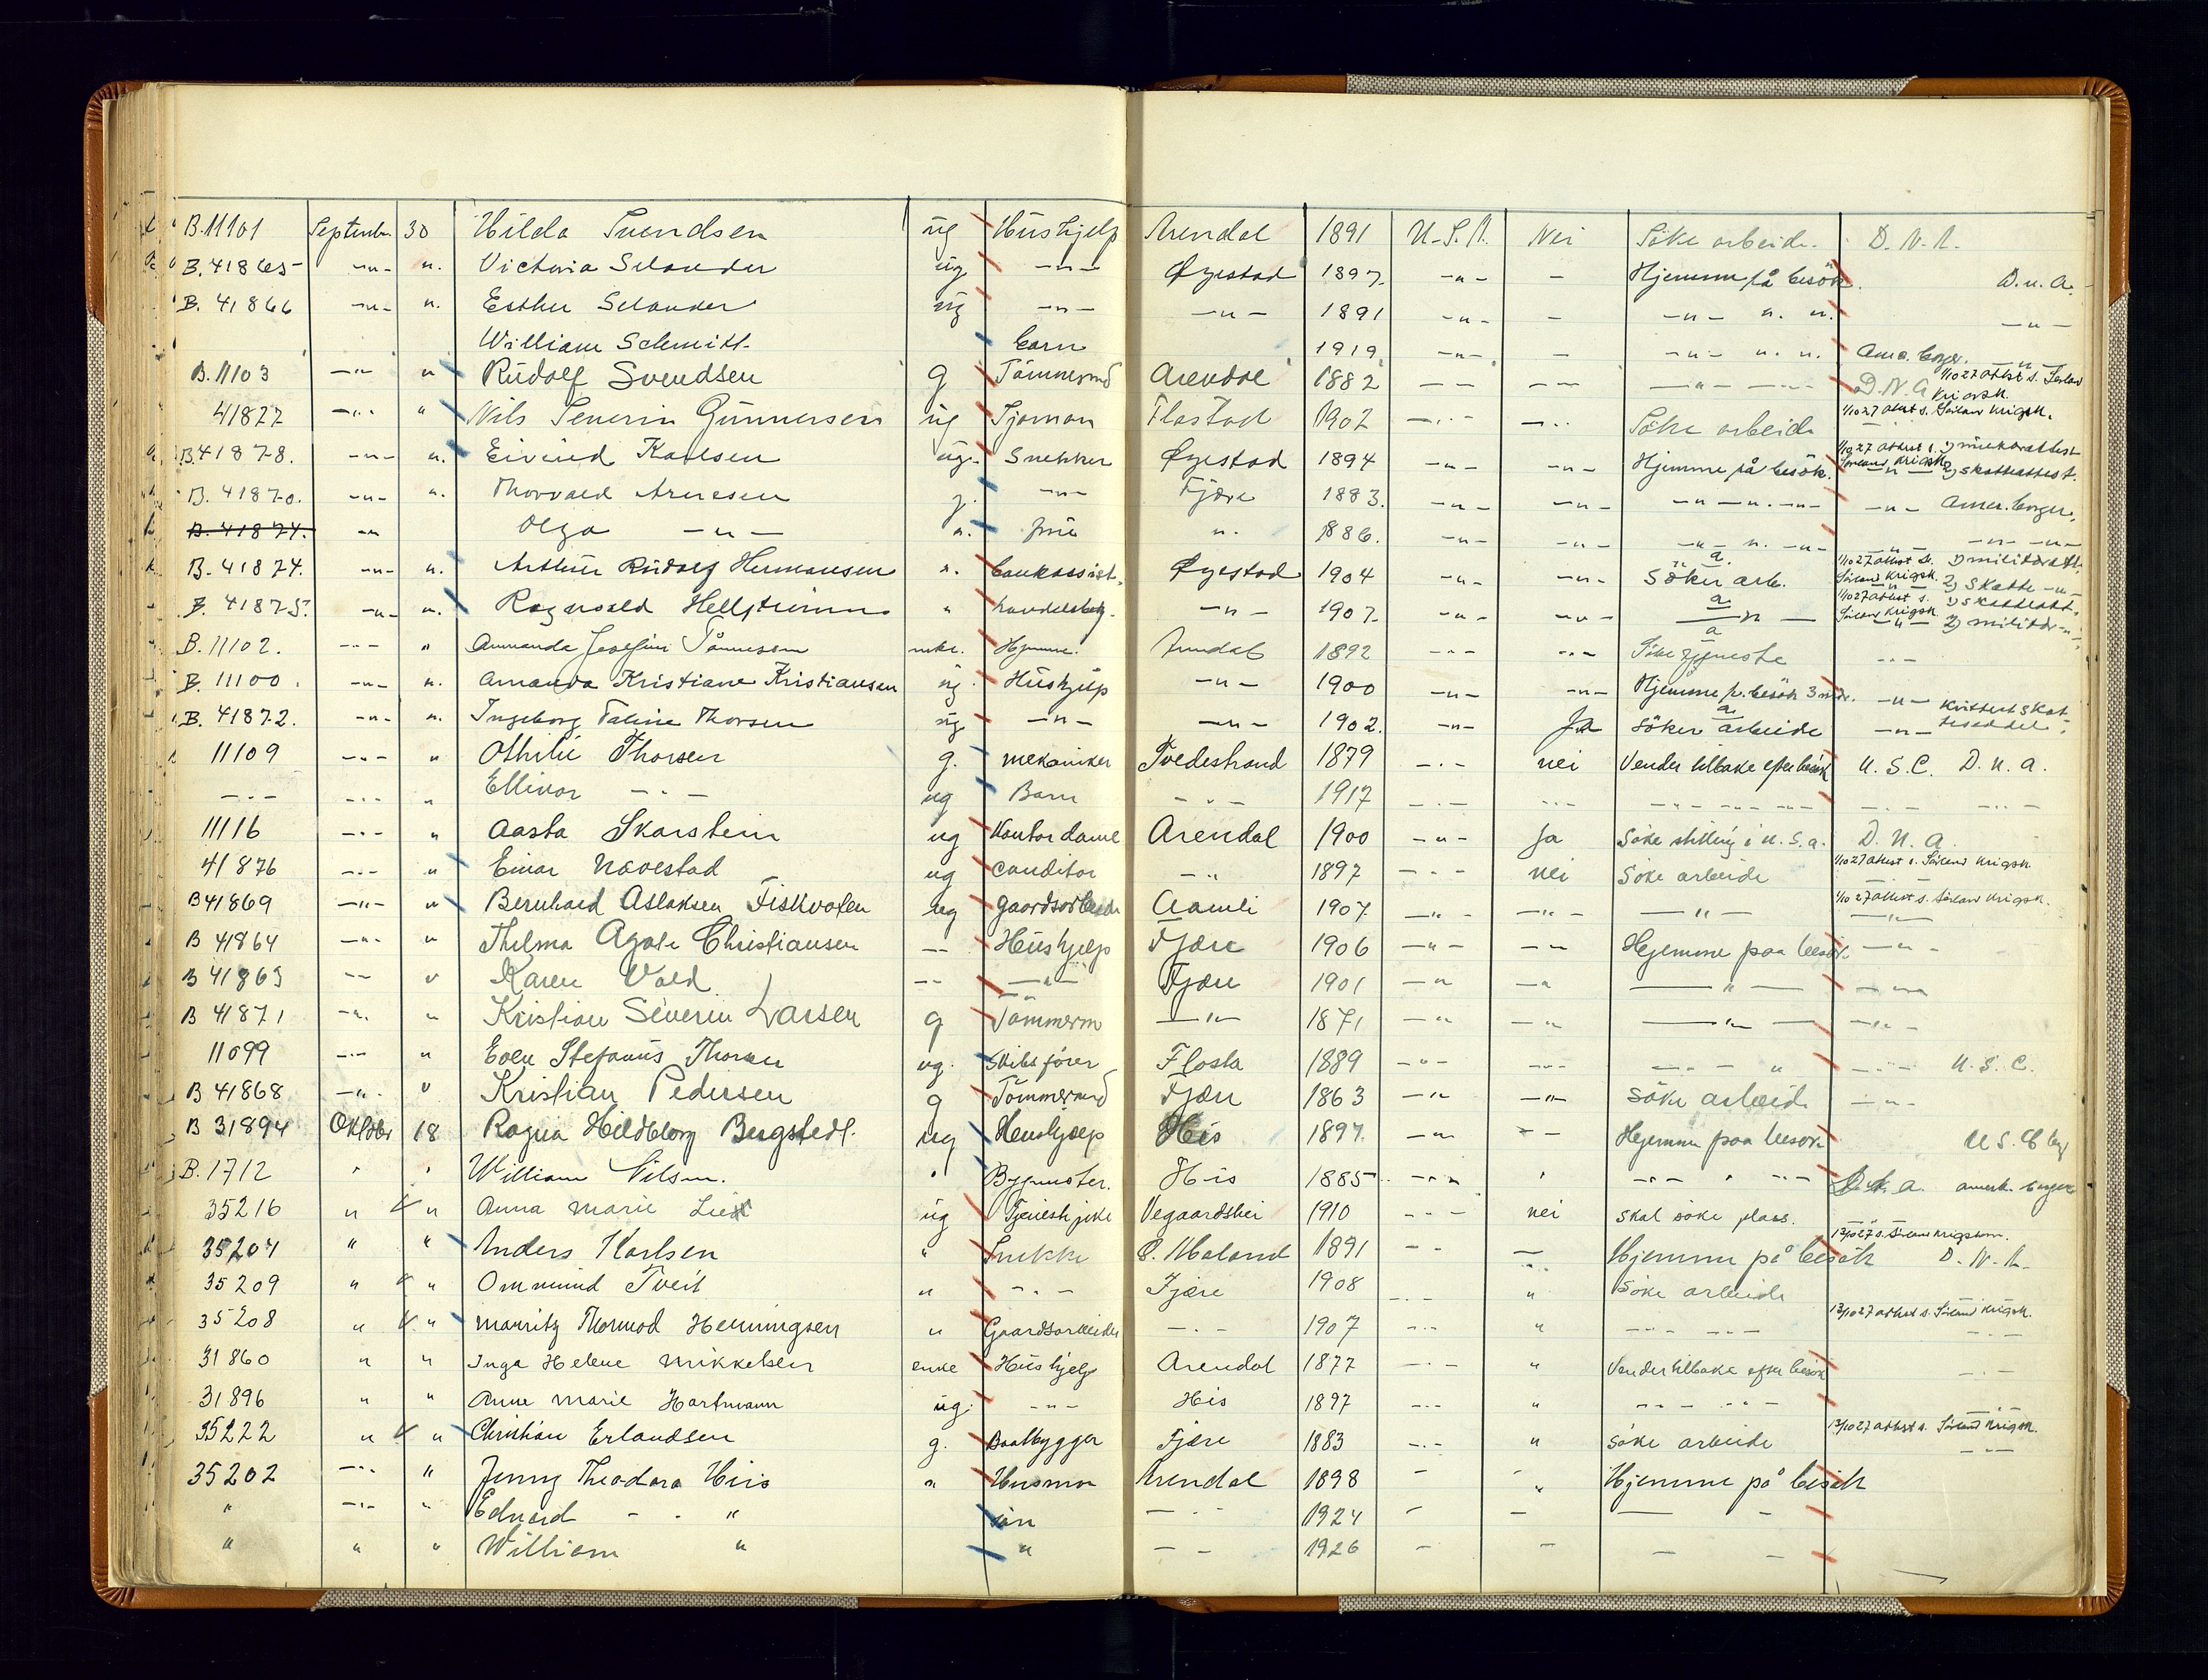 B.11101 Septembr. 30 Hilda Svendsen ug Hushjelp Arendal 1891 U.S.A. Nei Söke arbeide. D.N.A.
B. 41865 -"- ". Victoria Selander ug -"- Øyestad 1897. -"- - Hjemme på besök. D.n.A.
B. 41866 -"- ". Esther Selander ug -"- -"- 1891 -"- - -"- ". ". -"-
William Schmitt barn 1919 -"- - -"- ". ". Amr. borger. -"-
B.11103 -"- " Rudolf Svendsen g Tömmermd Arendal 1882 - - - - -"- - D.N.A 1/10 27 attest s. Sørland Krigsk.
41877 -"- " Nils Severin Gunnersen ug Sjöman Flostad 1902 -"- -"- Söke arbeide 1/10 27 attest s. Sørland Krigsk.
B.41878. -"- ". Eivind Karlsen ug. Snekker Øyestad 1894 -"- -"- Hjemme på besök. 1/10 27 attest s. Sørland Krigsk. -"- 2) skatteattest.
B. 41870. -"- ". Thorvald Arnesen g. -"- Fjære 1883. -"- -"- -"- -".-"- -"- Amer. borger.
B. 41874. -"- Olga -"- ". frue ". 1886. -"- -"- -"- ". -"- -"- -"- -"-
B. 41874. -"- ". Arthur Rudolf Hermansen ". bankassist. Øyestad 1904 -"- -"- Söker arb. 1/10 27 attest s. Sørland Krigsk. 1) militæratt. 2) Skatte -"-
B. 41875. -"- ". Ragnvald Hellstrøm " handelsbetj. -"- 1907. -"- -"- -"- 1/10 27 attest s. Sørland Krigsk. 1) skatteatt. 2) militær -"-
B. 11102. -"- " Amanda Josefine Tönnesen enke. Hjemme. Arendal 1892 -"- -"- Söke tjeneste -"-
B. 11100. -"- ". Amanda Kristiane Kristiansen ug. Hushjelp -"- 1900 -"- -"- Hjemme p. besök 3 mdr. -"- Kvittert skat-
B. 41872. -"- ". Ingeborg Taline Thorsen ug -"- -"- 1902. -"- Ja söker arbeide -"- teseddel.
11109 -"- " Othilie Thorsen g. mekaniker Tvedestrand 1879 -"- nei Vender tilbake efter besök U.S.C. D.n.a.
-"- -"- " Ellinor -"- ug Barn -"- 1917 -"- -"- -"- -"- -"- -"- -"-
11116 -"- " Aasta Skarstein ug Kontordame Arendal 1900 -"- Ja Söke stilling i U.S.a. D.n.a.
41876 -"- " Einar Navestad ug conditor -"- 1897 -"- nei Söke arbeide 1/10 27 attest s. Sørland Krigsk.
B41869 -"- " Bernhard Aslaksen Fiskvatn ug gaardsarbeider Aamli 1907. -"- -"- -"- 1/10 27 attest s. Sørland Krigsk. -"-
B 41864 -"- " Thelma Agate Christiansen -- Hushjelp Fjære 1906 -"- -"- Hjemme paa besök. -"-
B 41863 -"- " Karen Vold -- -"- Fjære 1901 -" -" -"- -"-
B 41871 -"- " Kristian Severin Larsen g Tömmerm -"- 1871 -" -" -"- -"-
11099 -"- " Even Stefanus Thorsen ug. Skibsförer Flosta 1889 -"- -"- -"- " -"- U.S.C.
B 41868 -"- " Kristian Pedersen g Tömmermd Fjære 1863 -" -"- Söke arbeide -"-
B 31894 Oktober 18 Ragna Hildborg Bergstedt. ug Hushjelp His 1897. -"- -"- Hjemme paa besok U.S.C.
B. 1712 " " William Nilsen. " Bygmester. His 1885 -"- " -"- " -"- D.n.a. amerk. borger
35216 " " Anna Marie Lien ug Vegaardshei 1910 -"- nei skal söke plass.
35204 " " Anders Karlsen " Snekker 1891 -"- - Hjemme på besök D.N.A.
35209 " " Ommund Tveit " -"- Fjære 1908 -"- " Söke arbeide
35208 " " Mauritz Thormod Henningsen " Gaardsarbeider -"- 1907 -"- " -"- -"- 13/10 27 attest s. Sørland Krigsk. -"-
31860 " " Inga Helene Mikkelsen enke Hushjelp Arendal 1877 -"- " Vender tilbake efter besök -"-
31896 " " Anne Marie Hartmann ug. -"- His 1897 -"- " -"- -"- -"-
35222 " " Christian Erlandsen g. Baatbygger Fjære 1883 -"- " Söke arbeide 13/10 27 attest s. Sørland Krigsk. -"-
35202 -"- " Jenny Theodora Hiis " Husmor Arendal 1898 - " Hjemme på besök
" -"- " Edvard - " sön - - 1924 - - - -
" " " William " " - - 1926 - - - -